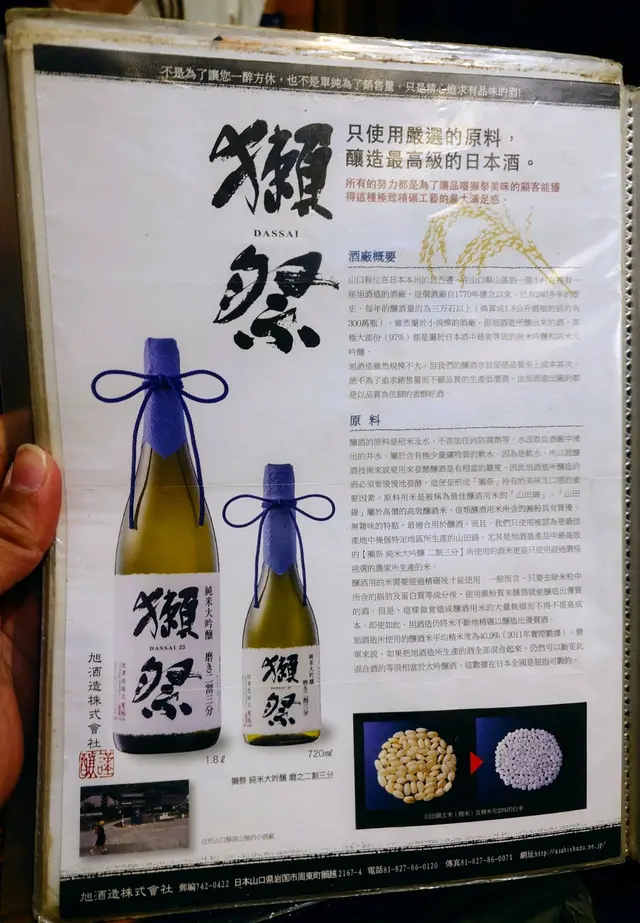 不是為了讓您一醉方休，也不是單純為了銷售量，只是精心追求有品味的酒!
獺祭
DASSAI
只使用嚴選的原料，
釀造最高級的日本酒。
所有的努力都是為了讓品嚐獺祭美味的顧客能獲
得這種極致精碾工藝的最大滿足感。
酒廠概要
山口縣位在日本本州的最西邊，在山口縣山區的一個小村莊裡有一
座旭酒造的酒廠。這個酒廠自1770年建立以來，已有240多年的歷
史。每年的釀酒量約為三萬石以上（換算成1.8公升酒瓶的話約為
300萬瓶），雖然屬於小規模的酒廠，但旭酒造所釀出來的酒，其
極大部份（97%）都是屬於日本酒中最高等級的純米吟釀和純米大
吟釀。
旭酒造雖然規模不大，但我們的釀酒宗旨卻是品質至上成本其次。
絕不為了追求銷售量而不顧品質的生產低價酒。由旭酒造出廠的都
是以品質為依歸的香醇好酒。
原料
釀酒的原料是稻米及水，不添加任何防腐劑等。水汲取自酒廠中湧
出的井水，屬於含有極少量礦物質的軟水。因為是軟水，所以就釀
酒技術來說要用來發酵釀酒是有相當的難度。因此旭酒造所釀造的
酒必須要慢慢地發酵，這便是形成「獺祭」持有的美味及口感的重
要因素。原料用米是被稱為最佳釀酒用米的「山田錦」。「山田
錦」屬於高價的高級釀酒米，這類釀酒用米所含的澱粉具有質優、
無雜味的特點，最適合用於釀酒。而且，我們只使用被認為是最佳
產地中幾個特定地區所生產的山田錦。尤其是旭酒造產品中最高級
的【獺祭 純米大吟釀 二割三分】所使用的酒米更是只使用經過嚴格
挑選的農家所生產的米。
釀酒用的米需要經過精碾後才能使用。一般而言，只要去除米粒中
所含的脂肪及蛋白質等成分後，使用澱粉質來釀酒就能釀造出優質
的酒。但是，這樣做會造成釀酒用米的大量耗損而不得不提高成
本。即使如此，旭酒造仍將不斷地精碾以釀造出優質酒。
旭酒造所使用的釀酒米平均精米度為40.9%（2011年實際數據）。簡
單來說，如果把旭酒造所生產的酒全部混合起來，仍然可以斷定此
混合酒的等級相當於大吟釀酒。這數據在日本全國是屈指可數的。
純米大吟釀
磨き二割三分
獺祭
DASSAI 23
純米大吟釀
磨き二割三分
獺祭
DASSAI 23
旭酒造株式會社
1.8ℓ
720mℓ
獺祭 純米大吟釀 磨之二割三分
位於山口縣深山裡的小酒廠
山田錦玄米（糙米）及精米至23%的白米
旭酒造株式会社 郵編742-0422 日本山口県岩国市周東町獺越2167-4 電話81-827-86-0120 傳真81-827-86-0071 網址http://asahishuzo.ne.jp/